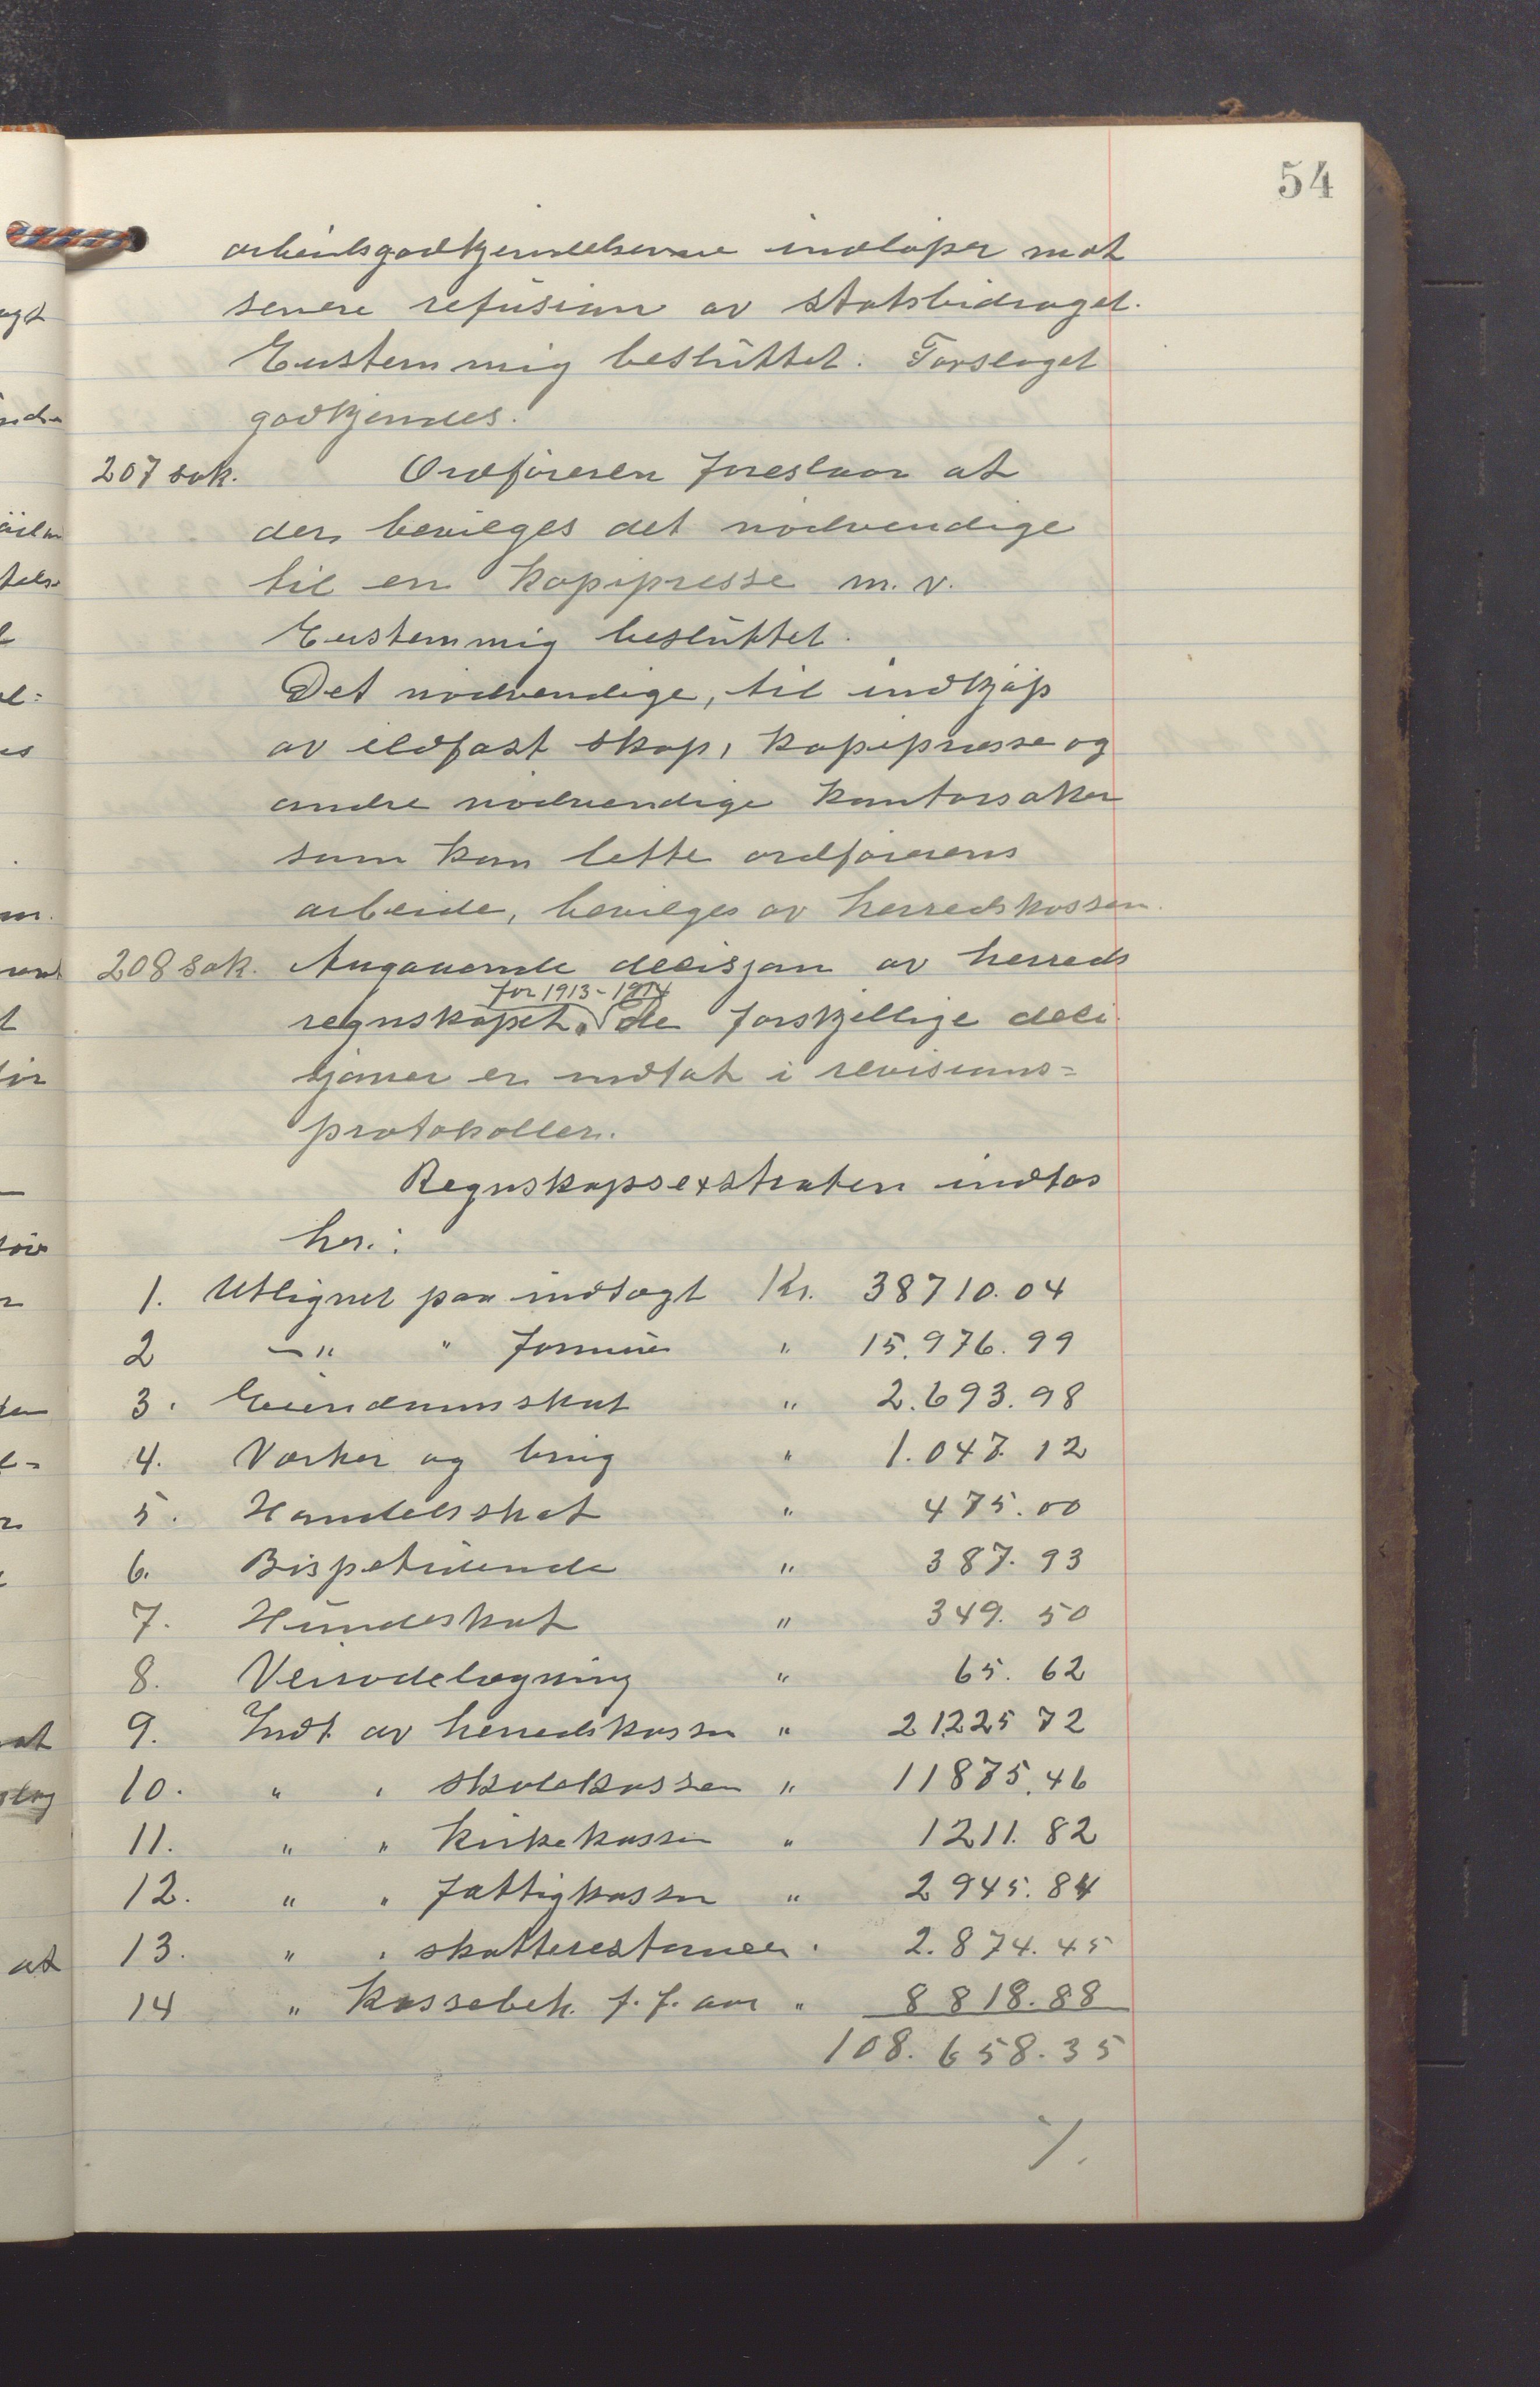 54
arbeidsgodkjendelserne indløper mot
senere refusion av statsbidraget.
Enstemmig besluttet. Forslaget
godkjendes.
207 sak. Ordføreren foreslaar at
der bevilges det nødvendige
til en kopipresse m.v.
Enstemmig besluttet.
Det nødvendige, til indkjøp
av ildfast skap, kopipresse og
andre nødvendige kontorsaker
som kan lette ordførerens
arbeide, bevilges av herredskassen.
208 sak. Angaaende decisjon av herreds
for 1913-1914
regnskapet. De forskjellige deci
sjoner er indtat i revisions=
protokollen.
Regnskapsextrakten indtas
her:
1. Utlignet paa indtægt Kr. 38710.04
2 -"- " formue " 15.976.99
3. Eiendomsskat " 2.693.98
4. Værker og brug " 1.047.12
5. Handelsskat " 475.00
6. Bispetiende " 387.93
7. Hundeskat " 349.50
8. Veirodelægning " 65.62
9. Indt. av herredskassen " 21225 72
10. " " skolekassen " 11875.46
11. " " kirkekassen " 1211.82
12. " " fattigkassen " 2945.84
13. " " skatterestancer " 2.874.45
14 " Kassebeh. f. f. aar " 8818.88
108.658.35
./.